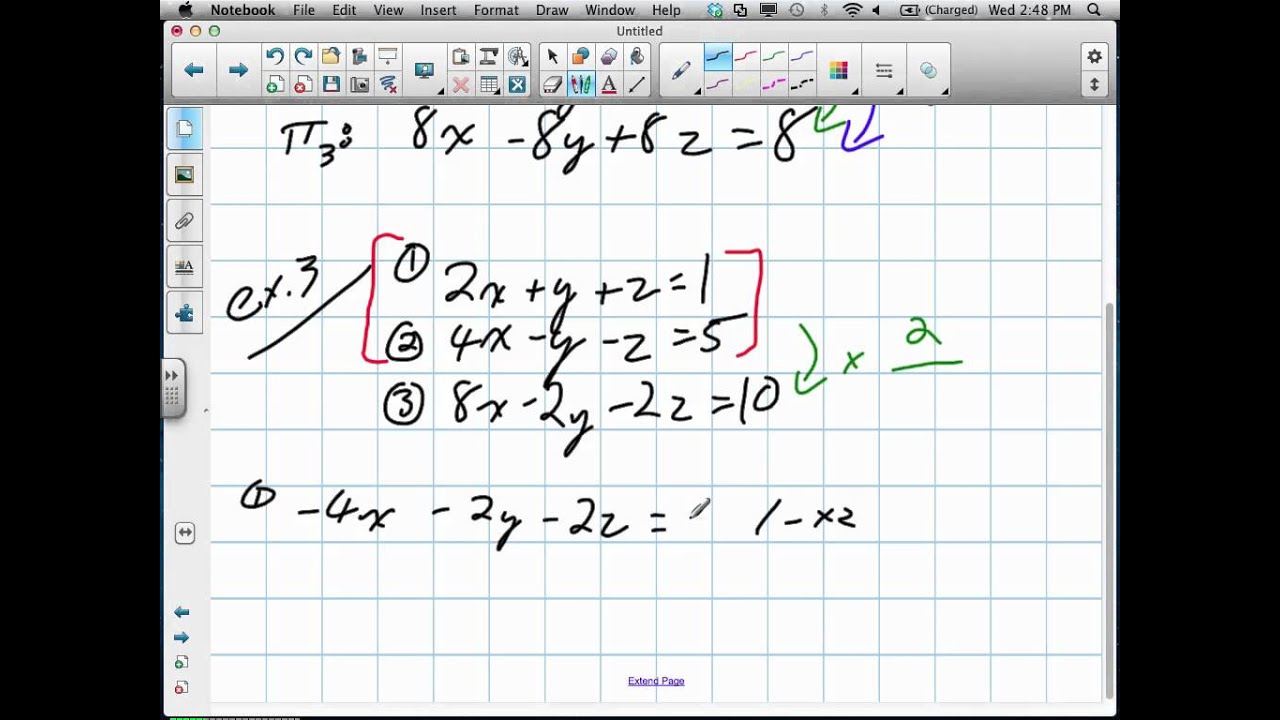 Notebook File Edit View Insert Format Draw Window Help (Charged) Wed 2:48 PM
Untitled
π₃: 8x - 8y + 8z = 8
ex.3
① 2x + y + z = 1
② 4x - y - z = 5
x 2
③ 8x - 2y - 2z = 10
① -4x - 2y - 2z = / - x2
Extend Page